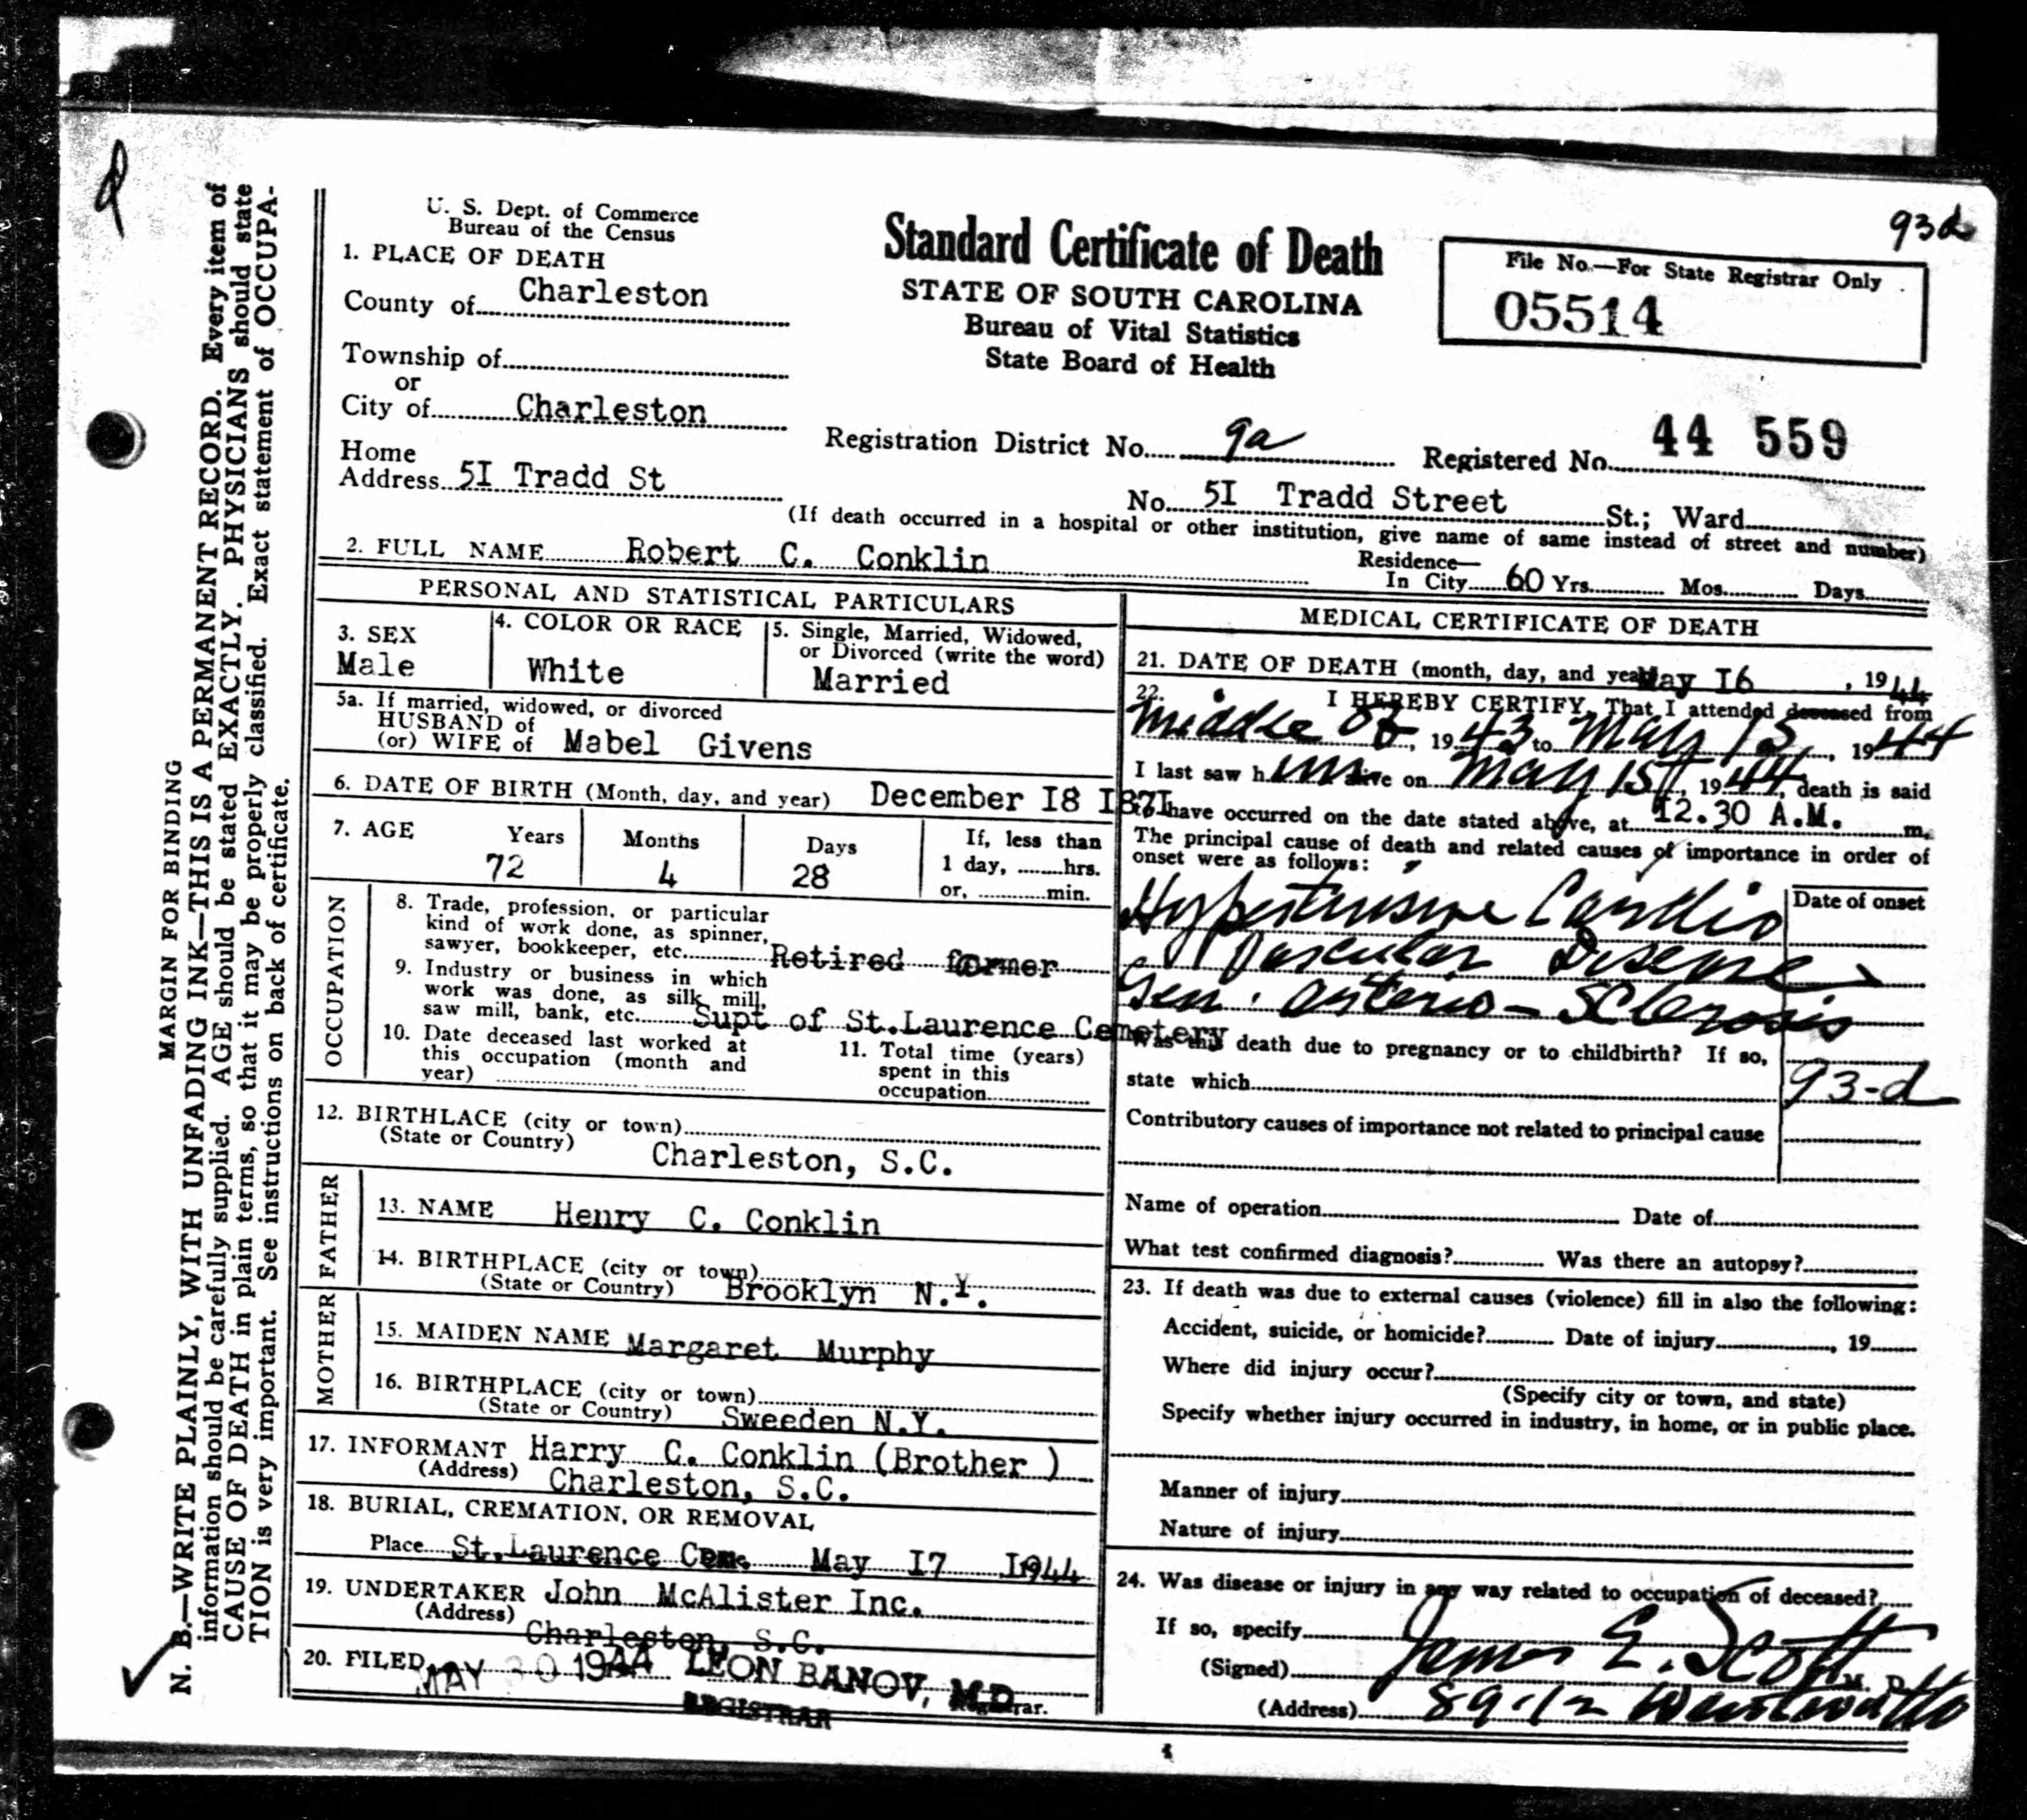 93d
U. S. Dept. of Commerce
Bureau of the Census
Standard Certificate of Death
STATE OF SOUTH CAROLINA
Bureau of Vital Statistics
State Board of Health
File No.—For State Registrar Only
05514
1. PLACE OF DEATH
County of Charleston
Township of
or
City of Charleston
Registration District No. 9a Registered No. 44 559
Home
Address 5I Tradd St
No. 5I Tradd Street St.; Ward
(If death occurred in a hospital or other institution, give name of same instead of street and number)
2. FULL NAME Robert C. Conklin
Residence—
In City 60 Yrs. Mos. Days
PERSONAL AND STATISTICAL PARTICULARS
3. SEX
Male
4. COLOR OR RACE
White
5. Single, Married, Widowed,
or Divorced (write the word)
Married
5a. If married, widowed, or divorced
HUSBAND of
(or) WIFE of Mabel Givens
6. DATE OF BIRTH (Month, day, and year) December I8 I87I
7. AGE Years Months Days If, less than
1 day, hrs.
or, min.
72 4 28
OCCUPATION
8. Trade, profession, or particular
kind of work done, as spinner,
sawyer, bookkeeper, etc. Retired former
9. Industry or business in which
work was done, as silk mill,
saw mill, bank, etc. Supt of St.Laurence Cemetery
10. Date deceased last worked at
this occupation (month and
year)
11. Total time (years)
spent in this
occupation
12. BIRTHLACE (city or town)
(State or Country) Charleston, S.C.
FATHER
13. NAME Henry C. Conklin
14. BIRTHPLACE (city or town)
(State or Country) Brooklyn N.Y.
MOTHER
15. MAIDEN NAME Margaret Murphy
16. BIRTHPLACE (city or town)
(State or Country) Sweeden N.Y.
17. INFORMANT Harry C. Conklin (Brother )
(Address) Charleston, S.C.
18. BURIAL, CREMATION, OR REMOVAL
Place St.Laurence Cem. May I7 I944
19. UNDERTAKER John McAlister Inc.
(Address) Charleston, S.C.
20. FILED MAY 30 1944 LEON BANOV, M.D. Registrar.
REGISTRAR
MEDICAL CERTIFICATE OF DEATH
21. DATE OF DEATH (month, day, and year) May I6, 1944
22. I HEREBY CERTIFY, That I attended deceased from
Middle of, 1943 to May 15, 1944
I last saw him alive on May 15, 1944, death is said
to have occurred on the date stated above, at 12.30 A.M. m.
The principal cause of death and related causes of importance in order of
onset were as follows:
Date of onset
Hypertensive Cardio
Vascular Disease
Gen. arterio-sclerosis
Was this death due to pregnancy or to childbirth? If so,
state which
93-d
Contributory causes of importance not related to principal cause
Name of operation Date of
What test confirmed diagnosis? Was there an autopsy?
23. If death was due to external causes (violence) fill in also the following:
Accident, suicide, or homicide? Date of injury, 19
Where did injury occur?
(Specify city or town, and state)
Specify whether injury occurred in industry, in home, or in public place.
Manner of injury
Nature of injury
24. Was disease or injury in any way related to occupation of deceased?
If so, specify
(Signed) James E. Scott M. D.
(Address) 89-1/2 Wentworth
MARGIN FOR BINDING
N. B.—WRITE PLAINLY, WITH UNFADING INK—THIS IS A PERMANENT RECORD. Every item of
information should be carefully supplied. AGE should be stated EXACTLY. PHYSICIANS should state
CAUSE OF DEATH in plain terms, so that it may be properly classified. Exact statement of OCCUPA-
TION is very important. See instructions on back of certificate.